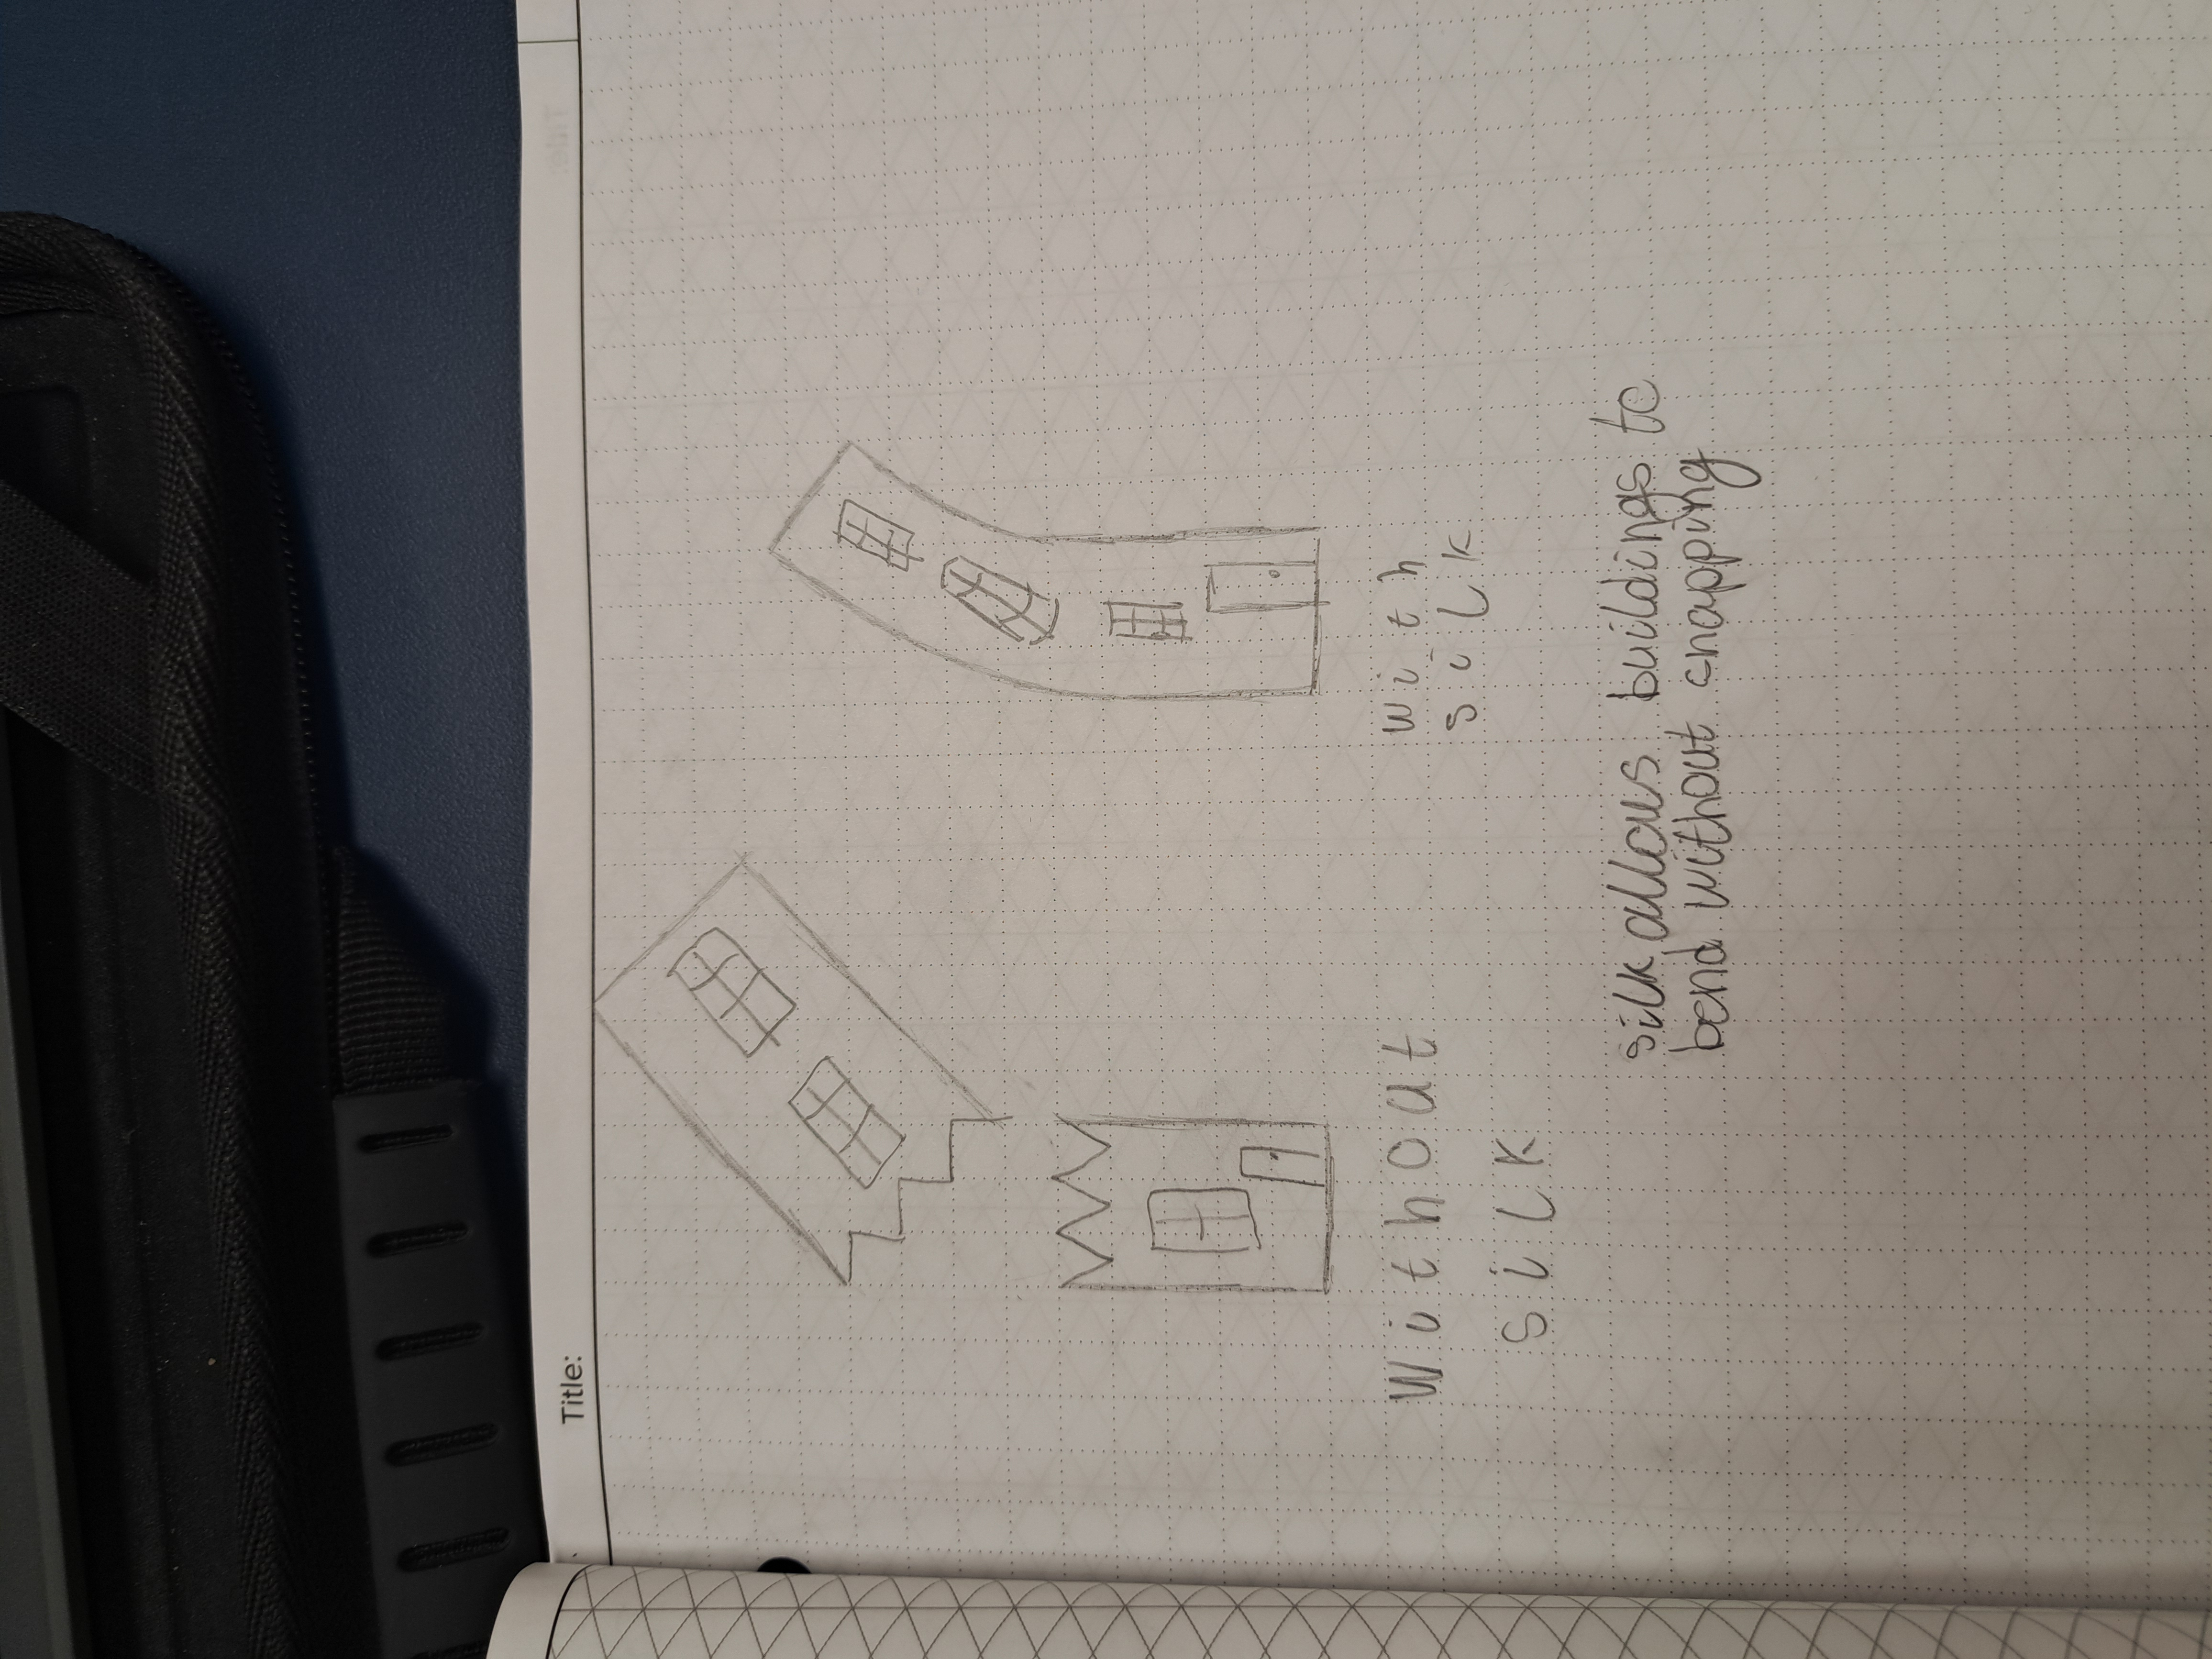 Title:
without
silk
with
silk
silk allows buildings to
bend without snapping